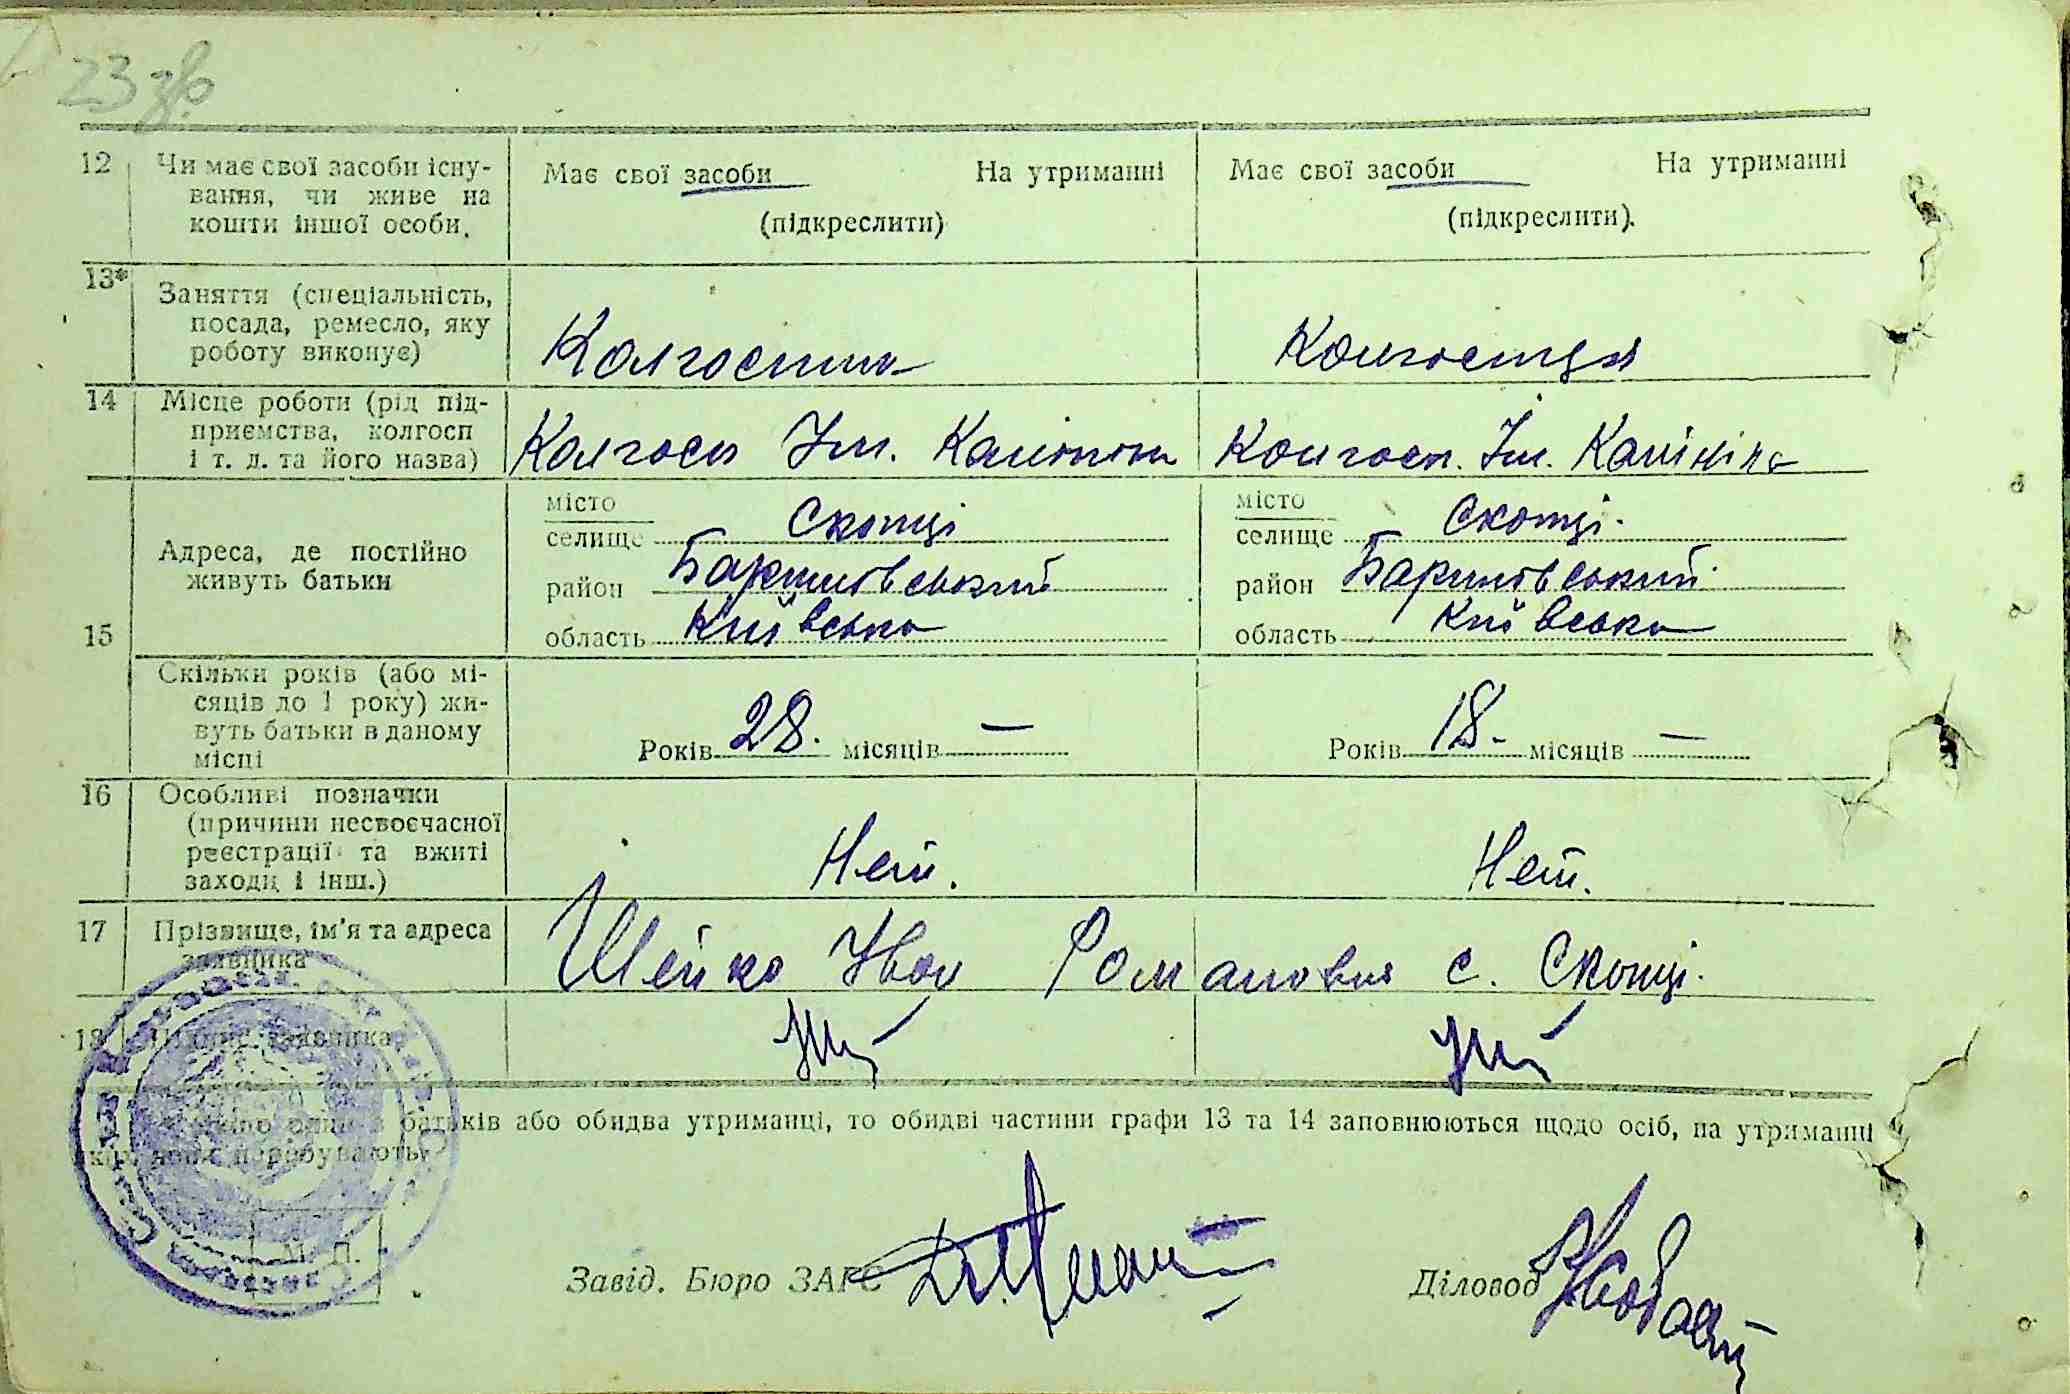 23 зв.
12 Чи має свої засоби існу-
вання, чи живе на
кошти іншої особи.
Має свої засоби На утриманні
(підкреслити)
Має свої засоби На утриманні
(підкреслити).
13*
Заняття (спеціальність,
посада, ремесло, яку
роботу виконує)
Колгоспник
Колгоспця
14 Місце роботи (рід під-
приємства, колгосп
і т. д. та його назва)
Колгосп Ім. Калініна
Колгосп. Ім. Калініна
15
Адреса, де постійно
живуть батьки
місто
селище Скопці
район Баришівський
область Київська
місто
селище Скопці.
район Баришівський
область Київська
Скільки років (або мі-
сяців до 1 року) жи-
вуть батьки в даному
місці
Років 28. місяців —
Років 18- місяців —
16 Особливі позначки
(причини несвоєчасної
реєстрації та вжиті
заходи і інш.)
Нет.
Нет.
17 Прізвище, ім'я та адреса
заявника
Шейко Іван Романович с. Скопці.
18 Підпис заявника
якщо один з батьків або обидва утриманці, то обидві частини графи 13 та 14 заповнюються щодо осіб, на утриманні
яких вони перебувають.
М. П.
Завід. Бюро ЗАГС
Діловод